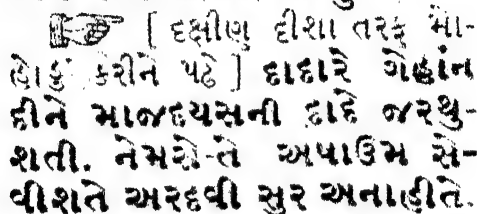 ☞ [ દક્ષીણ દીશા તરફ મો-
હોડું કરીને પઢે ] દાદારે ગેહાંન
દીને માજદયસની દાદે જરથુ-
શતી. નેમસે-તે અષાઉમ સે-
વીશતે અરદવી સુર અનાહીતે.